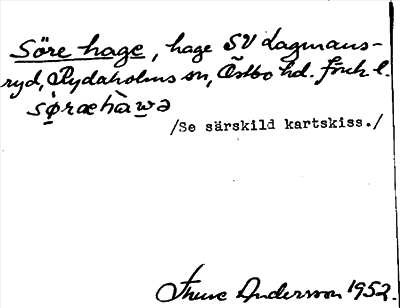 Söre hage, hage SV Lagmans-
ryd, Rydaholms sn, Östbo hd. Jönk. l.
sø̀ræhàwə
/Se särskild kartskiss./
Thure Andersson 1952.